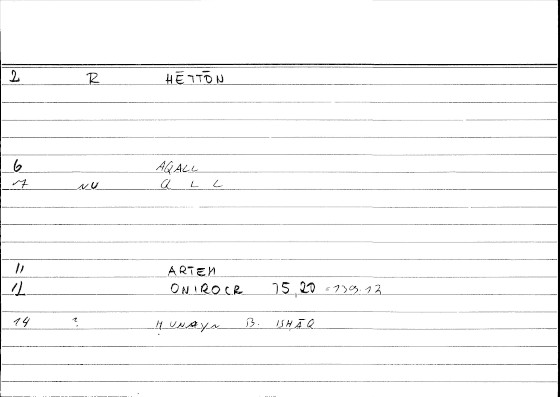 2 R HĒTTŌN
6 AQALL
7 NU Q L L
11 ARTEM
12 ONIROCR 15,20 = 139.12
14 ? ḤUNAYN B. ISḤĀQ